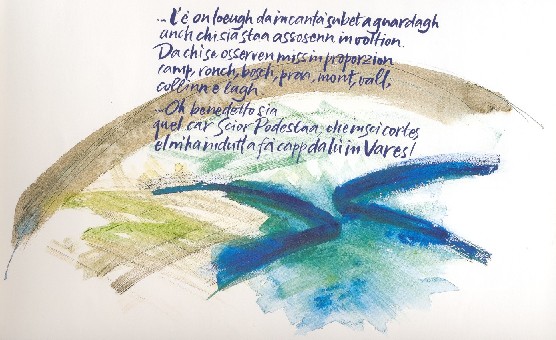 ... l'è on loeugh da incantà subet a guardagh
anch chi sia staa assosenn in voltion.
Da chi se osserven miss in proporzion
camp, ronch, bosch, praa, mont, vall,
collinn e lagh.
...Oh benedetto sia
quel car Scior Podestaa, che insci cortes
el m'ha indutt a fà capp da lù in Vares!